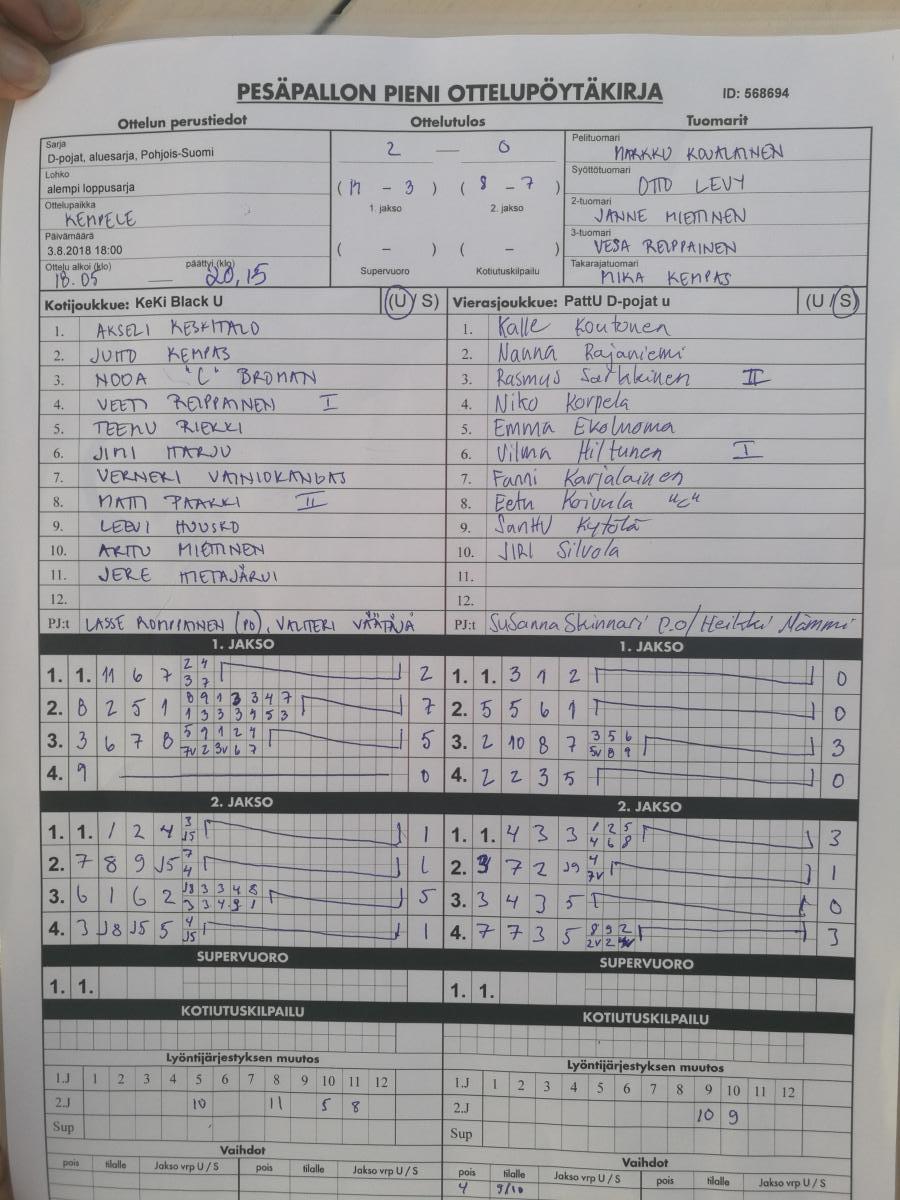 PESÄPALLON PIENI OTTELUPÖYTÄKIRJA ID: 568694
Ottelun perustiedot Ottelutulos Tuomarit
Sarja
D-pojat, aluesarja, Pohjois-Suomi
Lohko
alempi loppusarja
Ottelupaikka
KEMPELE
Päivämäärä
3.8.2018 18:00
Ottelu alkoi (klo) päättyi (klo)
18.05 — 20,15
2 — 0
( – 3 ) ( 8 – 7 )
1. jakso 2. jakso
( – ) ( – )
Supervuoro Kotiutuskilpailu
Pelituomari
MARKKU KOVALAINEN
Syöttötuomari
OTTO LEVY
2-tuomari
JANNE MIETTINEN
3-tuomari
VESA REIPPAINEN
Takarajatuomari
MIKA KEMPAS
Kotijoukkue: KeKi Black U (U / S)
1. AKSELI KESKITALO
2. JUHO KEMPAS
3. NOOA "C" BROMAN
4. VEETI REIPPAINEN I
5. TEEMU RIEKKI
6. JIMI HARJU
7. VERNERI VAINIOKANGAS
8. MATTI PAAKKI II
9. LEEVI HUUSKO
10. ARTTU MIETTINEN
11. JERE HIETAJÄRVI
12.
PJ:t LASSE ROMPPAINEN (PO), VALTTERI
Vierasjoukkue: PattU D-pojat u (U / S)
1. Kalle Koutonen
2. Nanna Rajaniemi
3. Rasmus II
4. Niko Korpela
5. Emma Ekoluoma
6. Vilma Hiltunen I
7. Fanni Karjalainen
8. Eetu Koivula "C"
9. Santtu Kytölä
10. JIRI Silvola
11.
12.
PJ:t Susanna Skinnari P.O/Heikki Nämmi
1. JAKSO
1. 1. 11 6 7 2 4 2
3 7
2. 8 2 5 1 8 9 1 3 3 4 7 7
1 3 3 3 4 5 3
3. 3 6 7 8 5 9 1 2 4 5
7v 2 3v 6 7
4. 9 0
1. JAKSO
1. 1. 3 1 2 0
2. 5 5 6 1 0
3. 2 10 8 7 3 5 6 3
5v 8 9
4. 2 2 3 5 0
2. JAKSO
1. 1. 1 2 4 3 1
J5
2. 7 8 9 J5 7 1
4
3. 6 1 6 2 J8 3 3 4 8 5
3 3 4 9 1
4. 3 J8 J5 5 4 1
J5
2. JAKSO
1. 1. 4 3 3 1 2 5 3
4 6 8
2. 3 7 2 J9 4 1
7v
3. 3 4 3 5 0
4. 7 7 3 5 8 9 2 3
2v 2
SUPERVUORO
1. 1.
SUPERVUORO
1. 1.
KOTIUTUSKILPAILU
KOTIUTUSKILPAILU
Lyöntijärjestyksen muutos
1.J 1 2 3 4 5 6 7 8 9 10 11 12
2.J 10 11 5 8
Sup
Lyöntijärjestyksen muutos
1.J 1 2 3 4 5 6 7 8 9 10 11 12
2.J 10 9
Sup
Vaihdot
pois tilalle Jakso vrp U / S pois tilalle Jakso vrp U / S
Vaihdot
pois tilalle Jakso vrp U / S pois tilalle Jakso vrp U / S
4 9/10